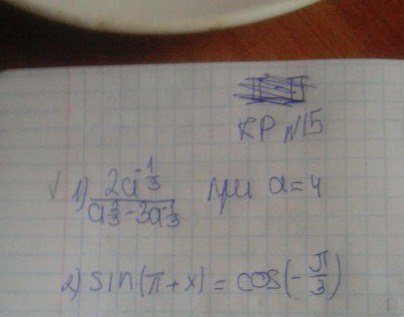 КР №15
1) 2a^(-1/3) / (a^(2/3) - 3a^(-1/3)) при a=4
2) sin(π+x)=cos(-π/3)